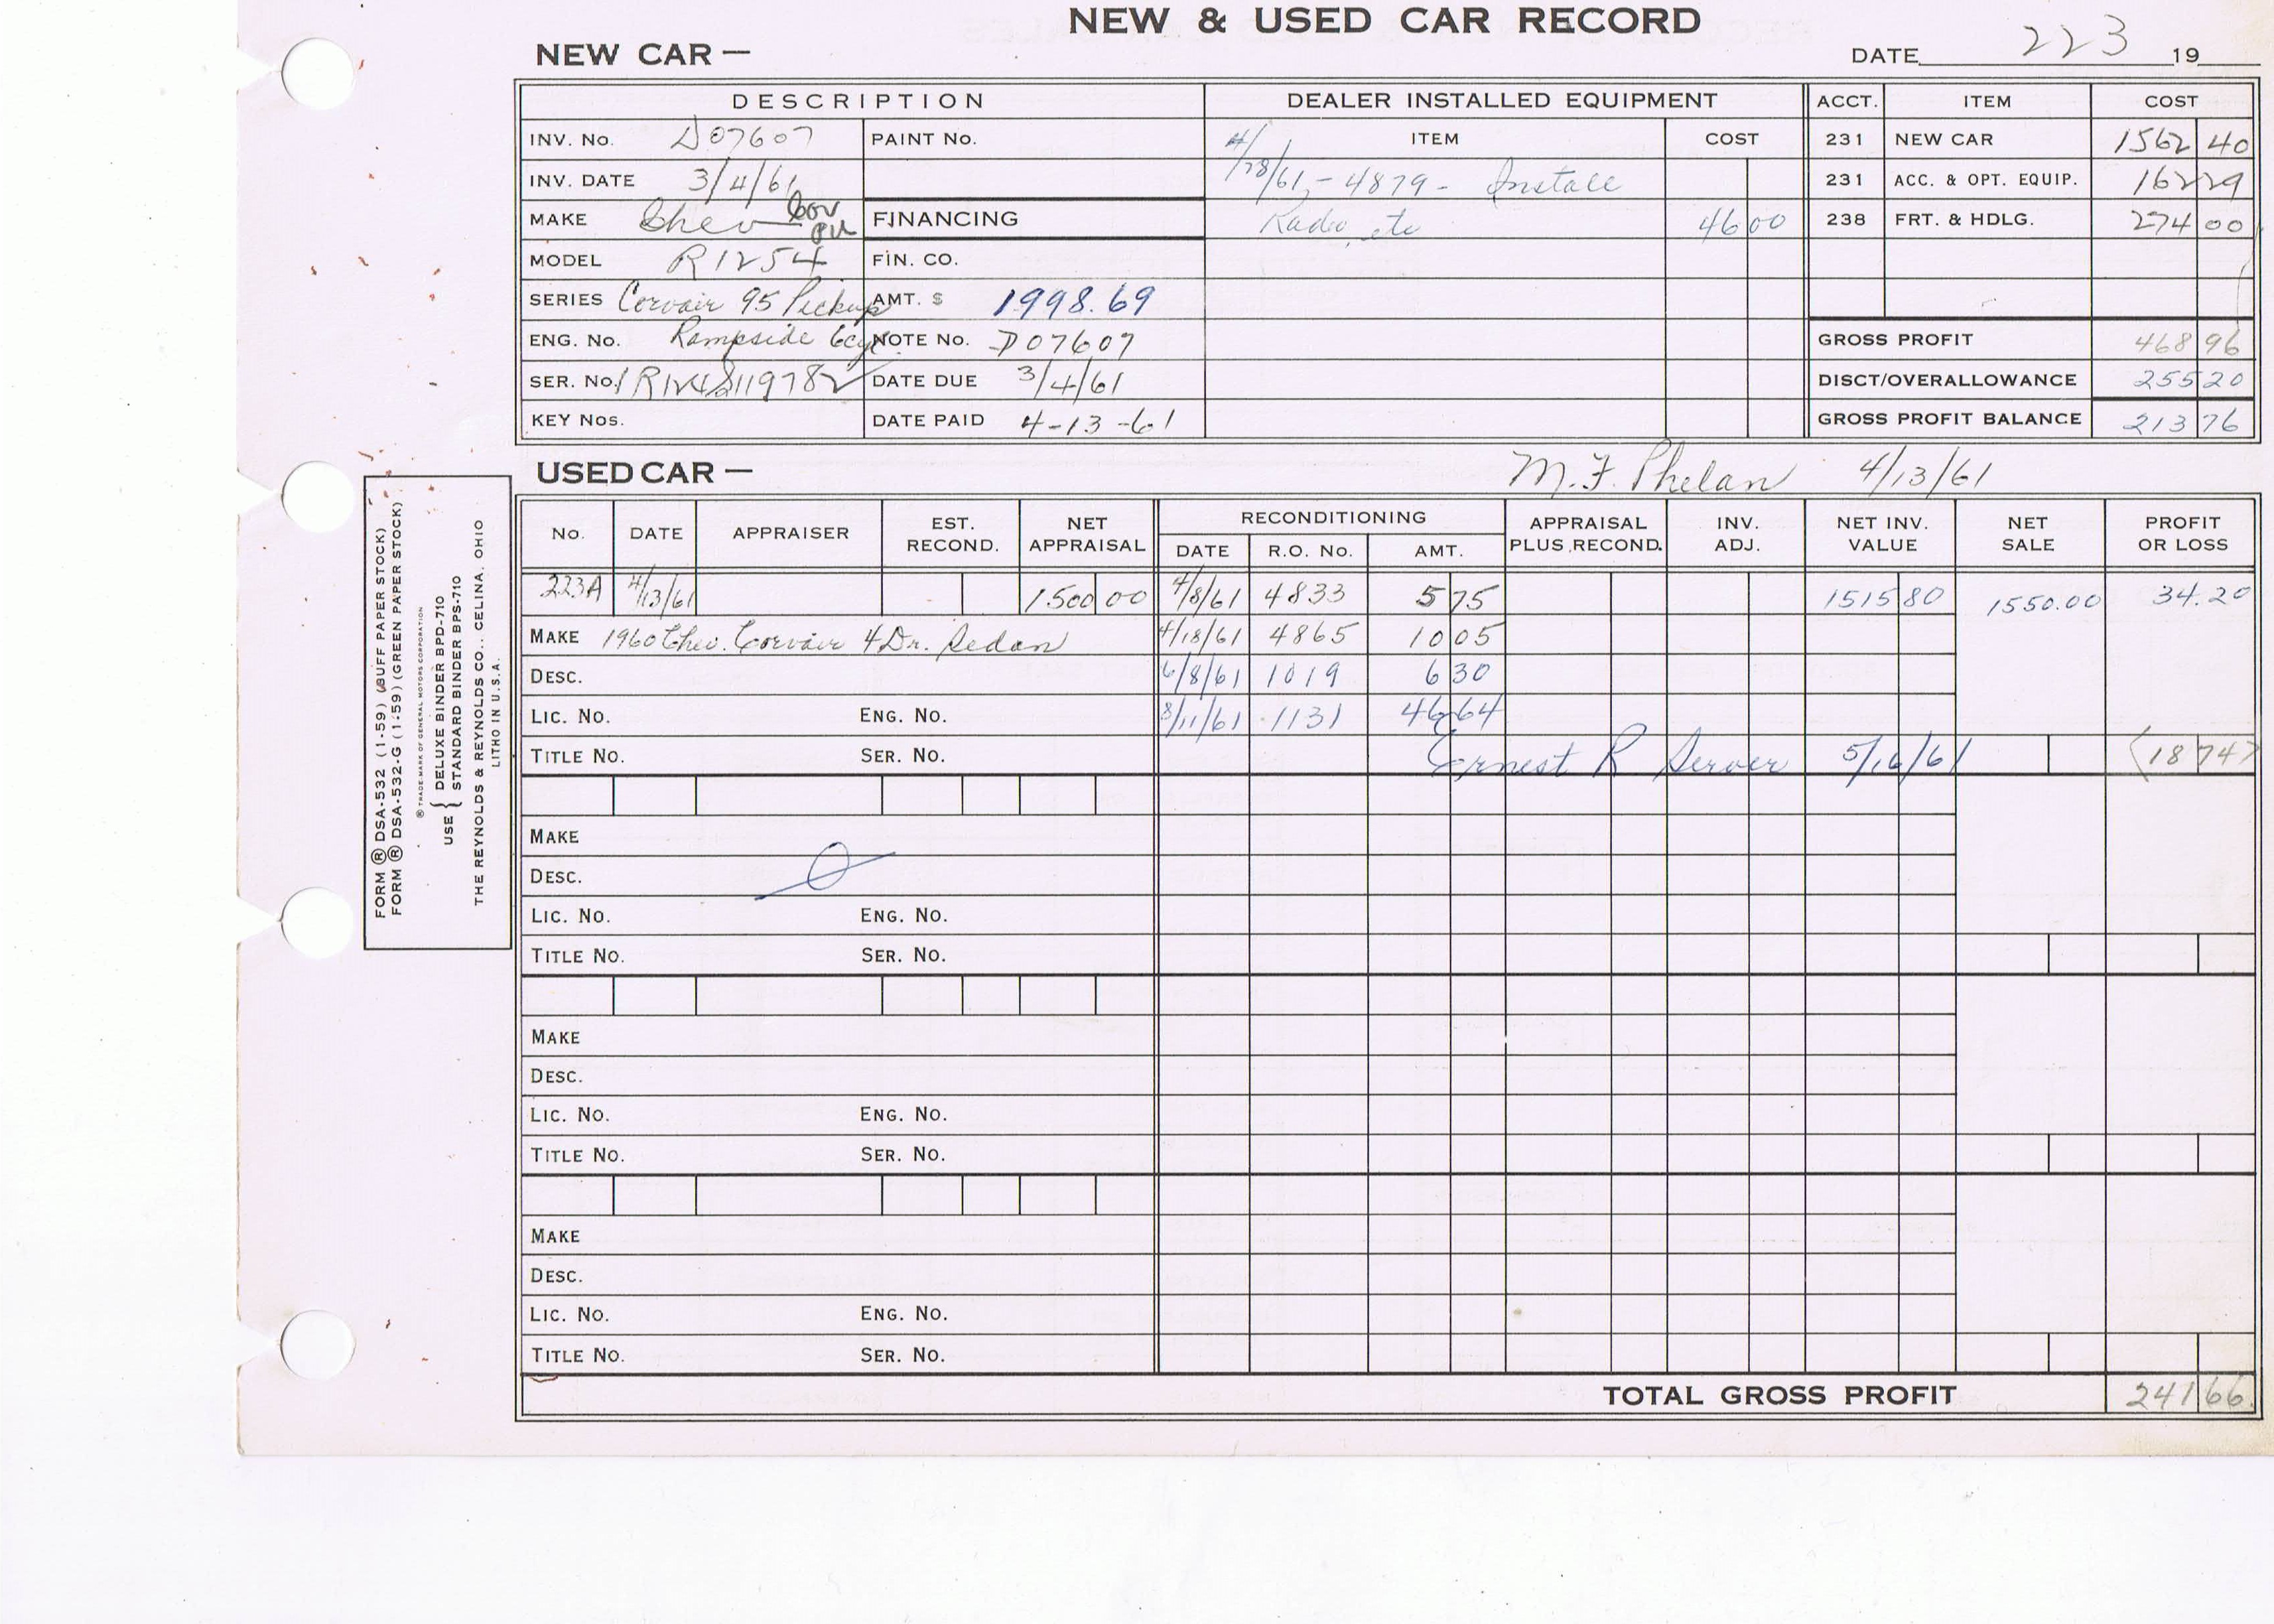 NEW & USED CAR RECORD
NEW CAR —
DATE 223 19
DESCRIPTION
DEALER INSTALLED EQUIPMENT
ACCT. ITEM COST
INV. No. D07607 PAINT No.
ITEM COST
231 NEW CAR 1562 40
INV. DATE 3/4/61
4/28/61 - 4879 - Install
231 ACC. & OPT. EQUIP. 162 29
MAKE Chev Cov PU FINANCING
Radio, etc 46 00
238 FRT. & HDLG. 274 00
MODEL R1254 FIN. CO.
SERIES Corvair 95 Pickup AMT. $ 1998.69
ENG. No. Rampside 6cyl NOTE No. D07607
GROSS PROFIT 468 96
SER. No. DATE DUE 3/4/61
DISCT/OVERALLOWANCE 255 20
KEY Nos. DATE PAID 4-13-61
GROSS PROFIT BALANCE 213 76
USED CAR —
M. F. Phelan 4/13/61
No. DATE APPRAISER EST. RECOND. NET APPRAISAL RECONDITIONING DATE R.O. No. AMT. APPRAISAL PLUS RECOND. INV. ADJ. NET INV. VALUE NET SALE PROFIT OR LOSS
223A 4/13/61 1500 00 4/8/61 4833 5 75 1515 80 1550.00 34.20
MAKE 1960 Chev. Corvair 4 Dr. Sedan 4/18/61 4865 10 05
DESC. 6/8/61 1019 6 30
LIC. No. ENG. No. 8/11/61 1131 46 64
TITLE No. SER. No. Ernest R Server 5/16/61 (18 74)
MAKE
DESC.
LIC. No. ENG. No.
TITLE No. SER. No.
MAKE
DESC.
LIC. No. ENG. No.
TITLE No. SER. No.
MAKE
DESC.
LIC. No. ENG. No.
TITLE No. SER. No.
TOTAL GROSS PROFIT 241 66
FORM ® DSA-532 (1-59) (BUFF PAPER STOCK)
FORM ® DSA-532-G (1-59) (GREEN PAPER STOCK)
® TRADE-MARK OF GENERAL MOTORS CORPORATION
USE { DELUXE BINDER BPD-710
STANDARD BINDER BPS-710
THE REYNOLDS & REYNOLDS CO., CELINA, OHIO
LITHO IN U.S.A.